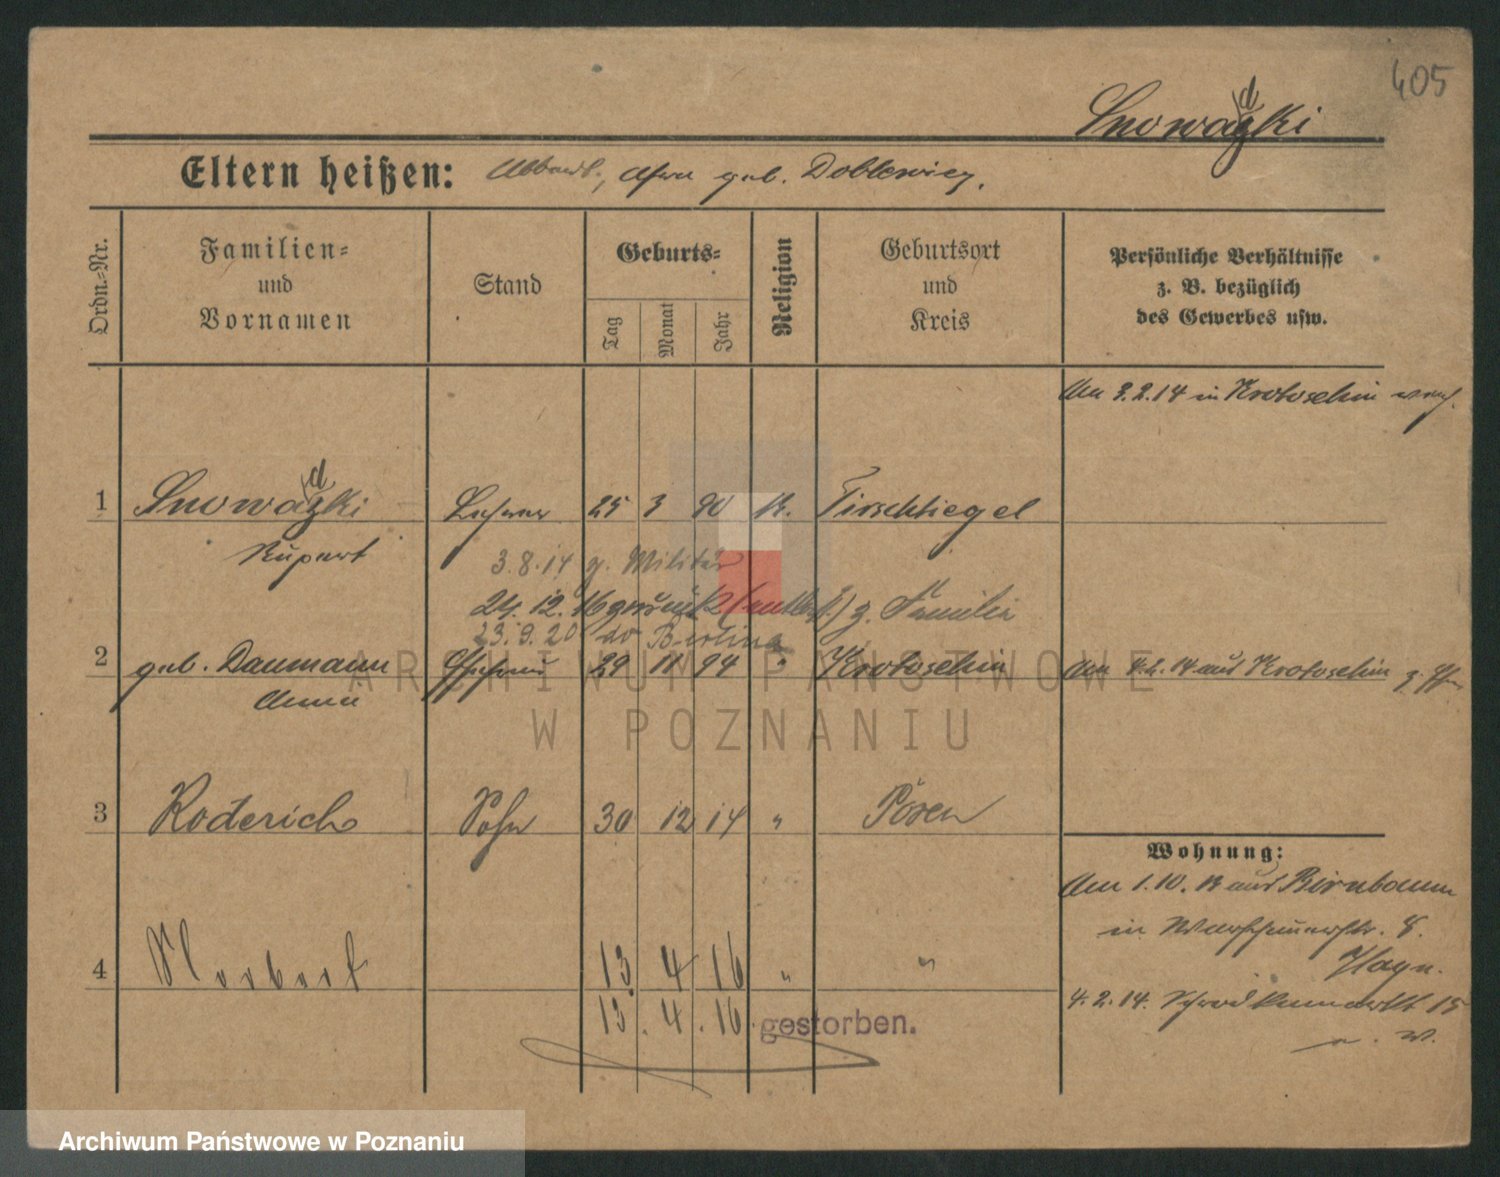 405
Snowadzki
Eltern heißen: Albert, geb. Doblewicz.
Ordn.-Nr.
Familien-
und
Vornamen
Stand
Geburts-
Tag
Monat
Jahr
Religion
Geburtsort
und
Kreis
Persönliche Verhältnisse
z. B. bezüglich
des Gewerbes usw.
Am 3.2.14 in Krotoschin verh.
1 Snowadzki Lehrer 25 3 90 K. Tirschtiegel
Rupert
3.8.14 z. Militär
24.12.16 zurück (entlass.) z. Familie
23.9.20 Berlin
2 geb. Daumann Ehefrau 29 11 94 " Krotoschin Am 4.2.14 aus Krotoschin z. Ehem
Anna
3 Roderich Sohn 30 12 14 " Posen
Wohnung:
Am 1.10.13 aus Birnbaum
in Warschauerstr. 8.
Hayn.
4 Norbert 13 4 16 " "
4.2.14. 15
13. 4. 16. gestorben.
n. W.
ARCHIWUM PAŃSTWOWE
W POZNANIU
Archiwum Państwowe w Poznaniu